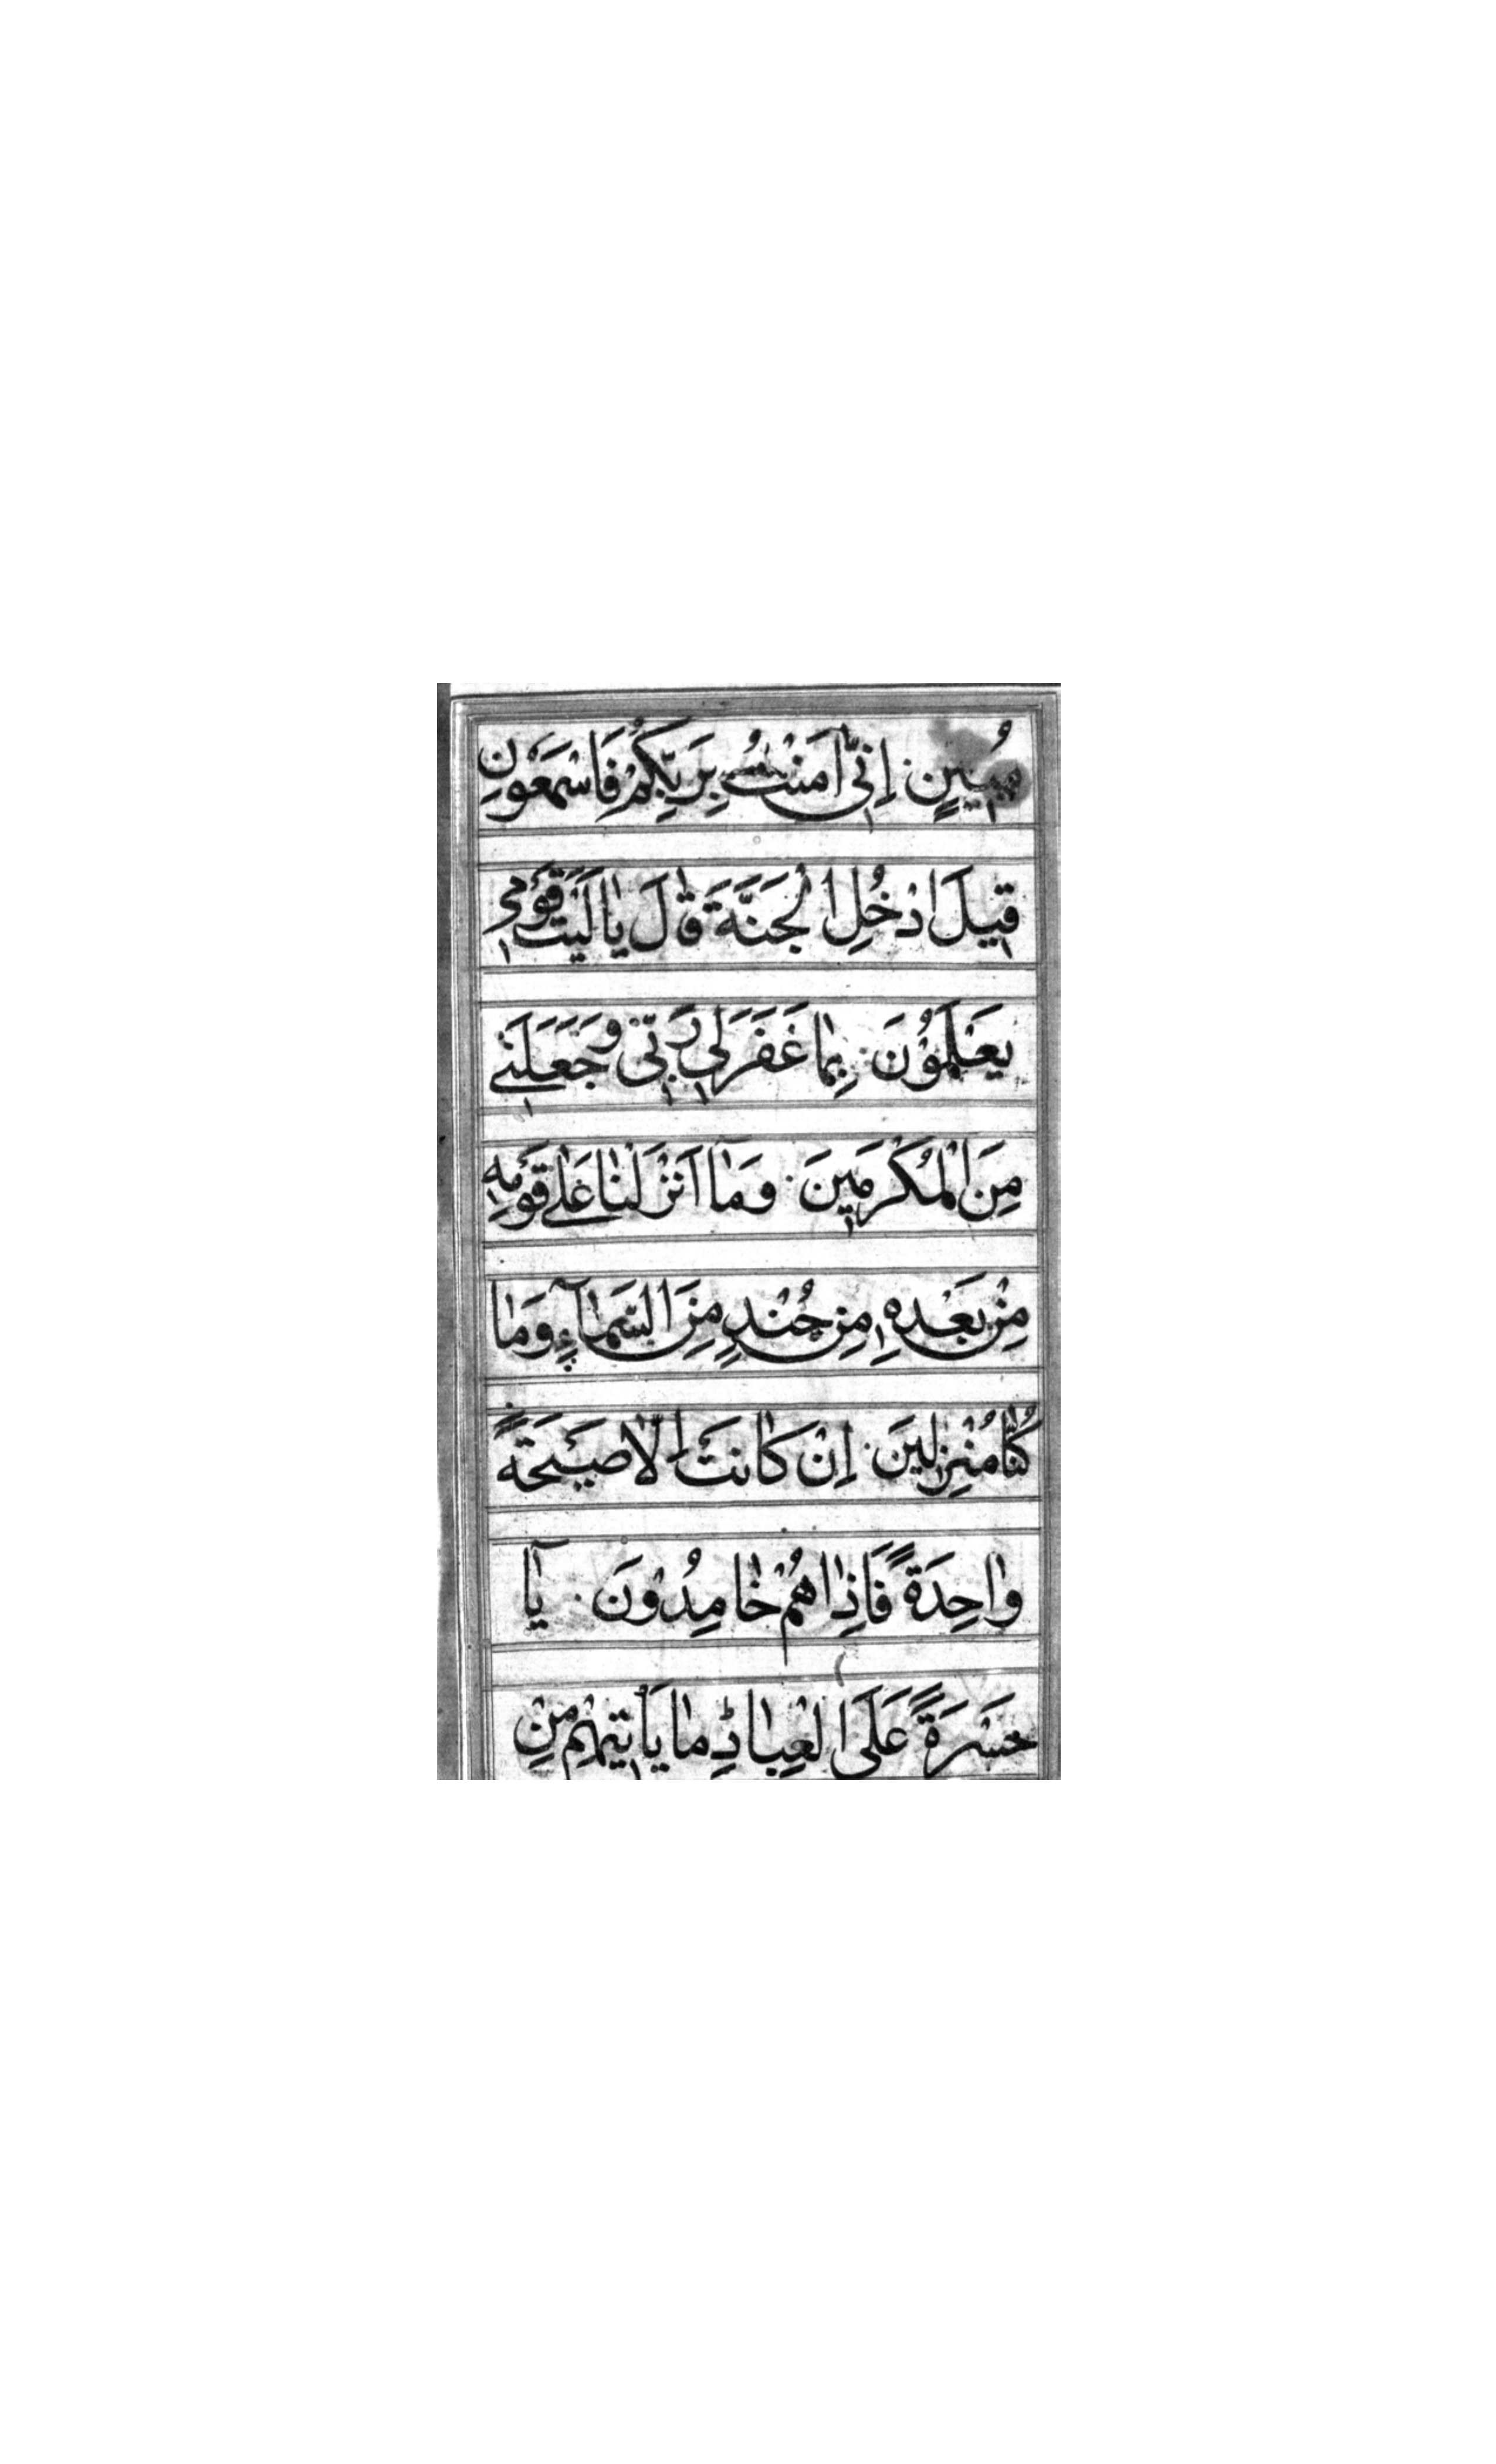 مُبِينٍ اِنّٖي آمَنْتُ بِرَبِّكُمْ فَاسْمَعُوْنِ
قٖيلَ ادْخُلِ الْجَنَّةَ قٰالَ يٰالَيْتَ قَوْمٖي
يَعْلَمُوْنَ بِمٰا غَفَرَلٖي رَبّٖي وَجَعَلَنٖے
مِنَ الْمُكْرَمٖينَ وَمٰٓا اَنْزَلْنٰا عَلٰے قَوْمِهٖ
مِنْ بَعْدِهٖ مِنْ جُنْدٍ مِنَ السَّمٰآءِ وَمٰا
كُنّٰا مُنْزِلٖينَ اِنْ كٰانَتْ اِلّٰا صَيْحَةً
وٰاحِدَةً فَاِذٰا هُمْ خٰامِدُوْنَ يٰٓا
حَسْرَةً عَلَى الْعِبٰادِ مٰا يَأْتٖيهِمْ مِنْ